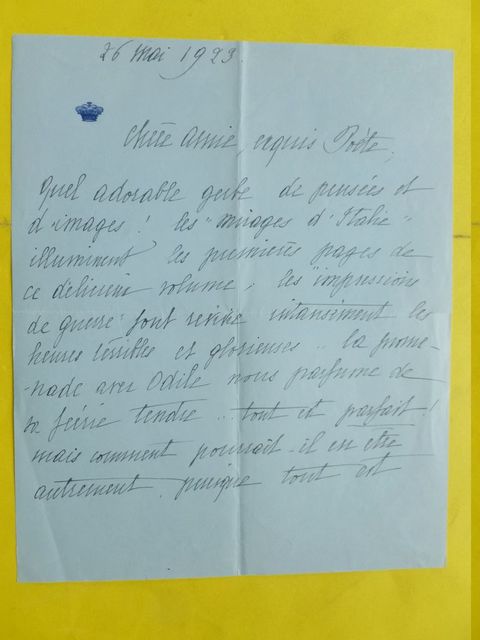 26 Mai 1923.
Chère Amie, exquis Poète,
Quel adorable gerbe de pensées et
d'images ! les "mirages d'Italie"
illuminent les premières pages de
ce délicieux volume, les "impressions
de guerre" font revivre intensément les
heures terribles et glorieuses .. la prome-
-nade avec Odile nous parfume de
sa féerie tendre .. tout est parfait !
mais comment pourrait-il en être
autrement, puisque tout est